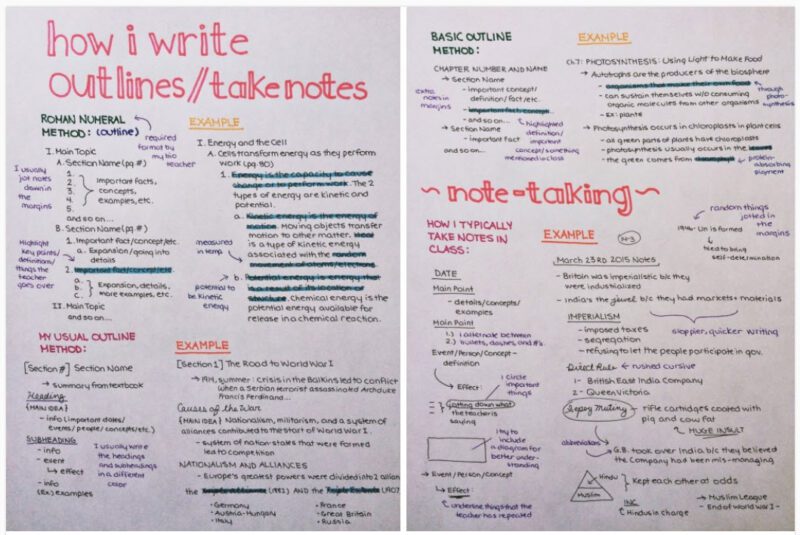 how i write
outlines//take notes
ROMAN NUMERAL
METHOD: (outline)
required
format by
my bio
teacher
I. Main Topic
A. Section Name (pg #)
1.
2.
3.
4.
5.
Important facts,
concepts,
examples, etc.
and so on...
I usually
jot notes
down in
the
margins
B. Section Name (pg #)
1. Important fact/concept/etc.
a. Expansion/going into
details
2. Important fact/concept/etc
a.
b.
c.
Expansion, details,
more examples, etc.
Highlight
key points/
definitions/
things the
teacher
goes over
II. Main Topic
and so on...
EXAMPLE
I. Energy and the Cell
A. Cells transform energy as they perform
work (pg 80)
1. Energy is the capacity to cause
change or to perform work. The 2
types of energy are kinetic and
potential.
a. Kinetic energy is the energy of
motion. Moving objects transfer
motion to other matter. Heat
is a type of kinetic energy
associated with the random
movement of atoms/electrons
measured
in temp
b. Potential energy is energy that
is a result of its location or
structure. Chemical energy is the
potential energy available for
release in a chemical reaction.
potential to
be kinetic
energy
MY USUAL OUTLINE
METHOD:
[Section #] Section Name
→ summary from textbook
Heading
{MAIN IDEA}
- info (important dates/
events/people/concepts/etc.)
SUBHEADING
- info
- event
↳ effect
- info
(Ex) examples
I usually write
the headings
and subheadings
in a different
color
EXAMPLE
[Section 1] The Road to World War I
→ 1914, summer: crisis in the Balkins led to conflict
when a Serbian terrorist assassinated Archduke
Francis Ferdinand...
Causes of the War
{MAIN IDEA} Nationalism, militarism, and a system of
alliances contributed to the start of World War I.
- system of nation-states that were formed
led to competition
NATIONALISM AND ALLIANCES
- Europe's greatest powers were divided into 2 allian
the Triple Alliance (1882) AND the Triple Entente (1907
• Germany
• Austria-Hungary
• Italy
• France
• Great Britain
• Russia
BASIC OUTLINE
METHOD:
CHAPTER NUMBER AND NAME
→ Section Name
- important concept/
definition/fact/etc.
- important fact/concept
- and so on...
→ Section Name
- important fact
and so on...
extra
notes in
margins
highlighted
definition/
important
concept/something
mentioned in class
EXAMPLE
Ch.7: PHOTOSYNTHESIS: Using Light to Make Food
→ Autotrophs are the producers of the biosphere
- organisms that make their own food
- can sustain themselves w/o consuming
organic molecules from other organisms
- Ex: plants
through
photo-
synthesis
→ Photosynthesis occurs in chloroplasts in plant cells
- all green parts of plants have chloroplasts
- photosynthesis usually occurs in the leaves
- the green comes from chlorophyll
protein-
absorbing
pigment
~ note-taking ~
HOW I TYPICALLY
TAKE NOTES IN
CLASS:
DATE
Main Point
- details/concepts/
examples
Main Point
1.) I alternate between
2.) bullets, dashes, and #s.
Event/Person/Concept -
definition
↳ Effect:
I circle
important
things
Getting down what
the teacher is
saying
I try to
include
a diagram for
better under-
standing
→ Event/Person/Concept
↳ Effect:
underline things that the
teacher has repeated
EXAMPLE
N-3
random things
jotted in the
margins
1946- Un is formed
tead to being
self-determination
March 23rd 2015 Notes
- Britain was imperialistic b/c they
were industrialized
- India's the jewel b/c they had markets + materials
IMPERIALISM
- imposed taxes
- segregation
- refusing to let the people participate in gov.
sloppier, quicker writing
Direct Rule ← rushed cursive
1- British East India Company
2- Queen Victoria
Sepoy Mutiny → rifle cartridges coated with
pig and cow fat
↳ HUGE INSULT
abbreviations
→ G.B. took over India b/c they believed
the Company had been mis-managing
Hindu
Muslim
Kept each other at odds
INC
↳ Hindus in charge
→ Muslim League
- End of world war I -